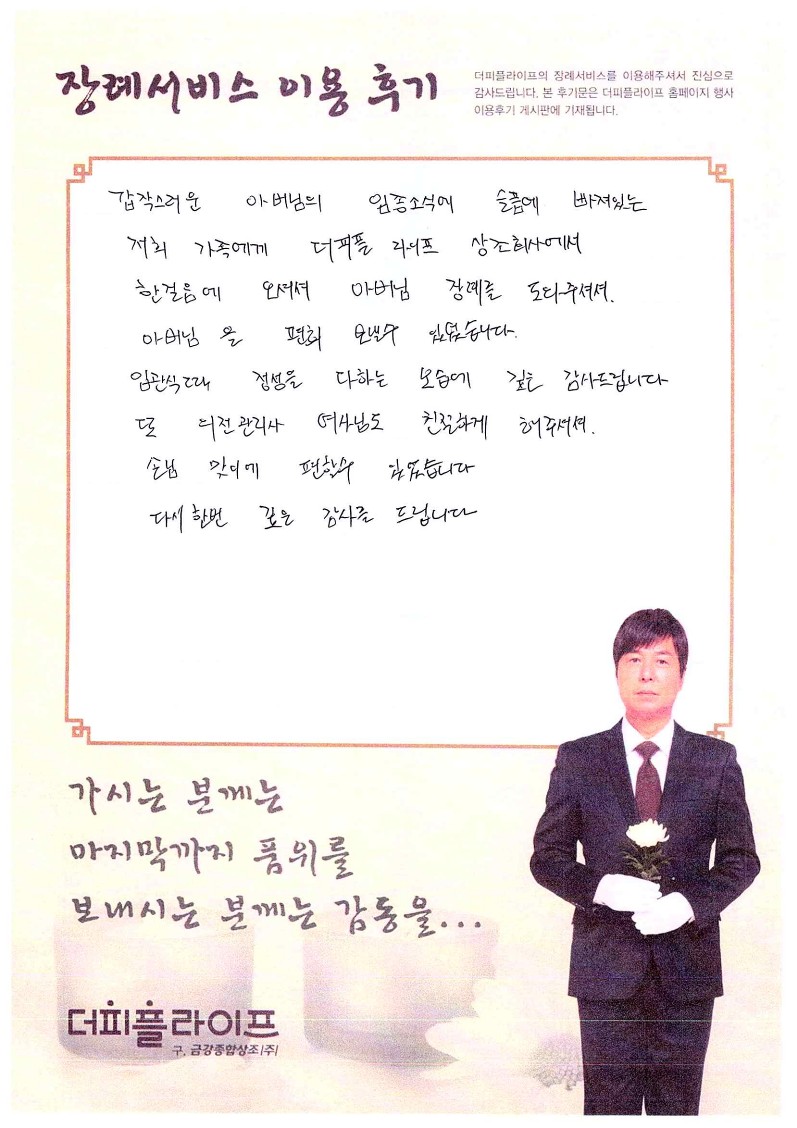 장례서비스 이용 후기
더피플라이프의 장례서비스를 이용해주셔서 진심으로
감사드립니다. 본 후기문은 더피플라이프 홈페이지 행사
이용후기 게시판에 기재됩니다.
갑작스러운 아버님의 임종소식에 슬픔에 빠져있는
저희 가족에게 더피플 라이프 상조회사에서
한걸음에 오셔서 아버님 장례를 도와주셔서.
아버님을 편히 보낼수 있었습니다.
입관식때 정성을 다하는 모습에 깊은 감사드립니다
또 의전관리사 여사님도 친절하게 해주셔서.
손님 맞이에 편할수 있었습니다
다시한번 깊은 감사를 드립니다
가시는 분께는
마지막까지 품위를
보내시는 분께는 감동을...
더피플라이프
구. 금강종합상조(주)